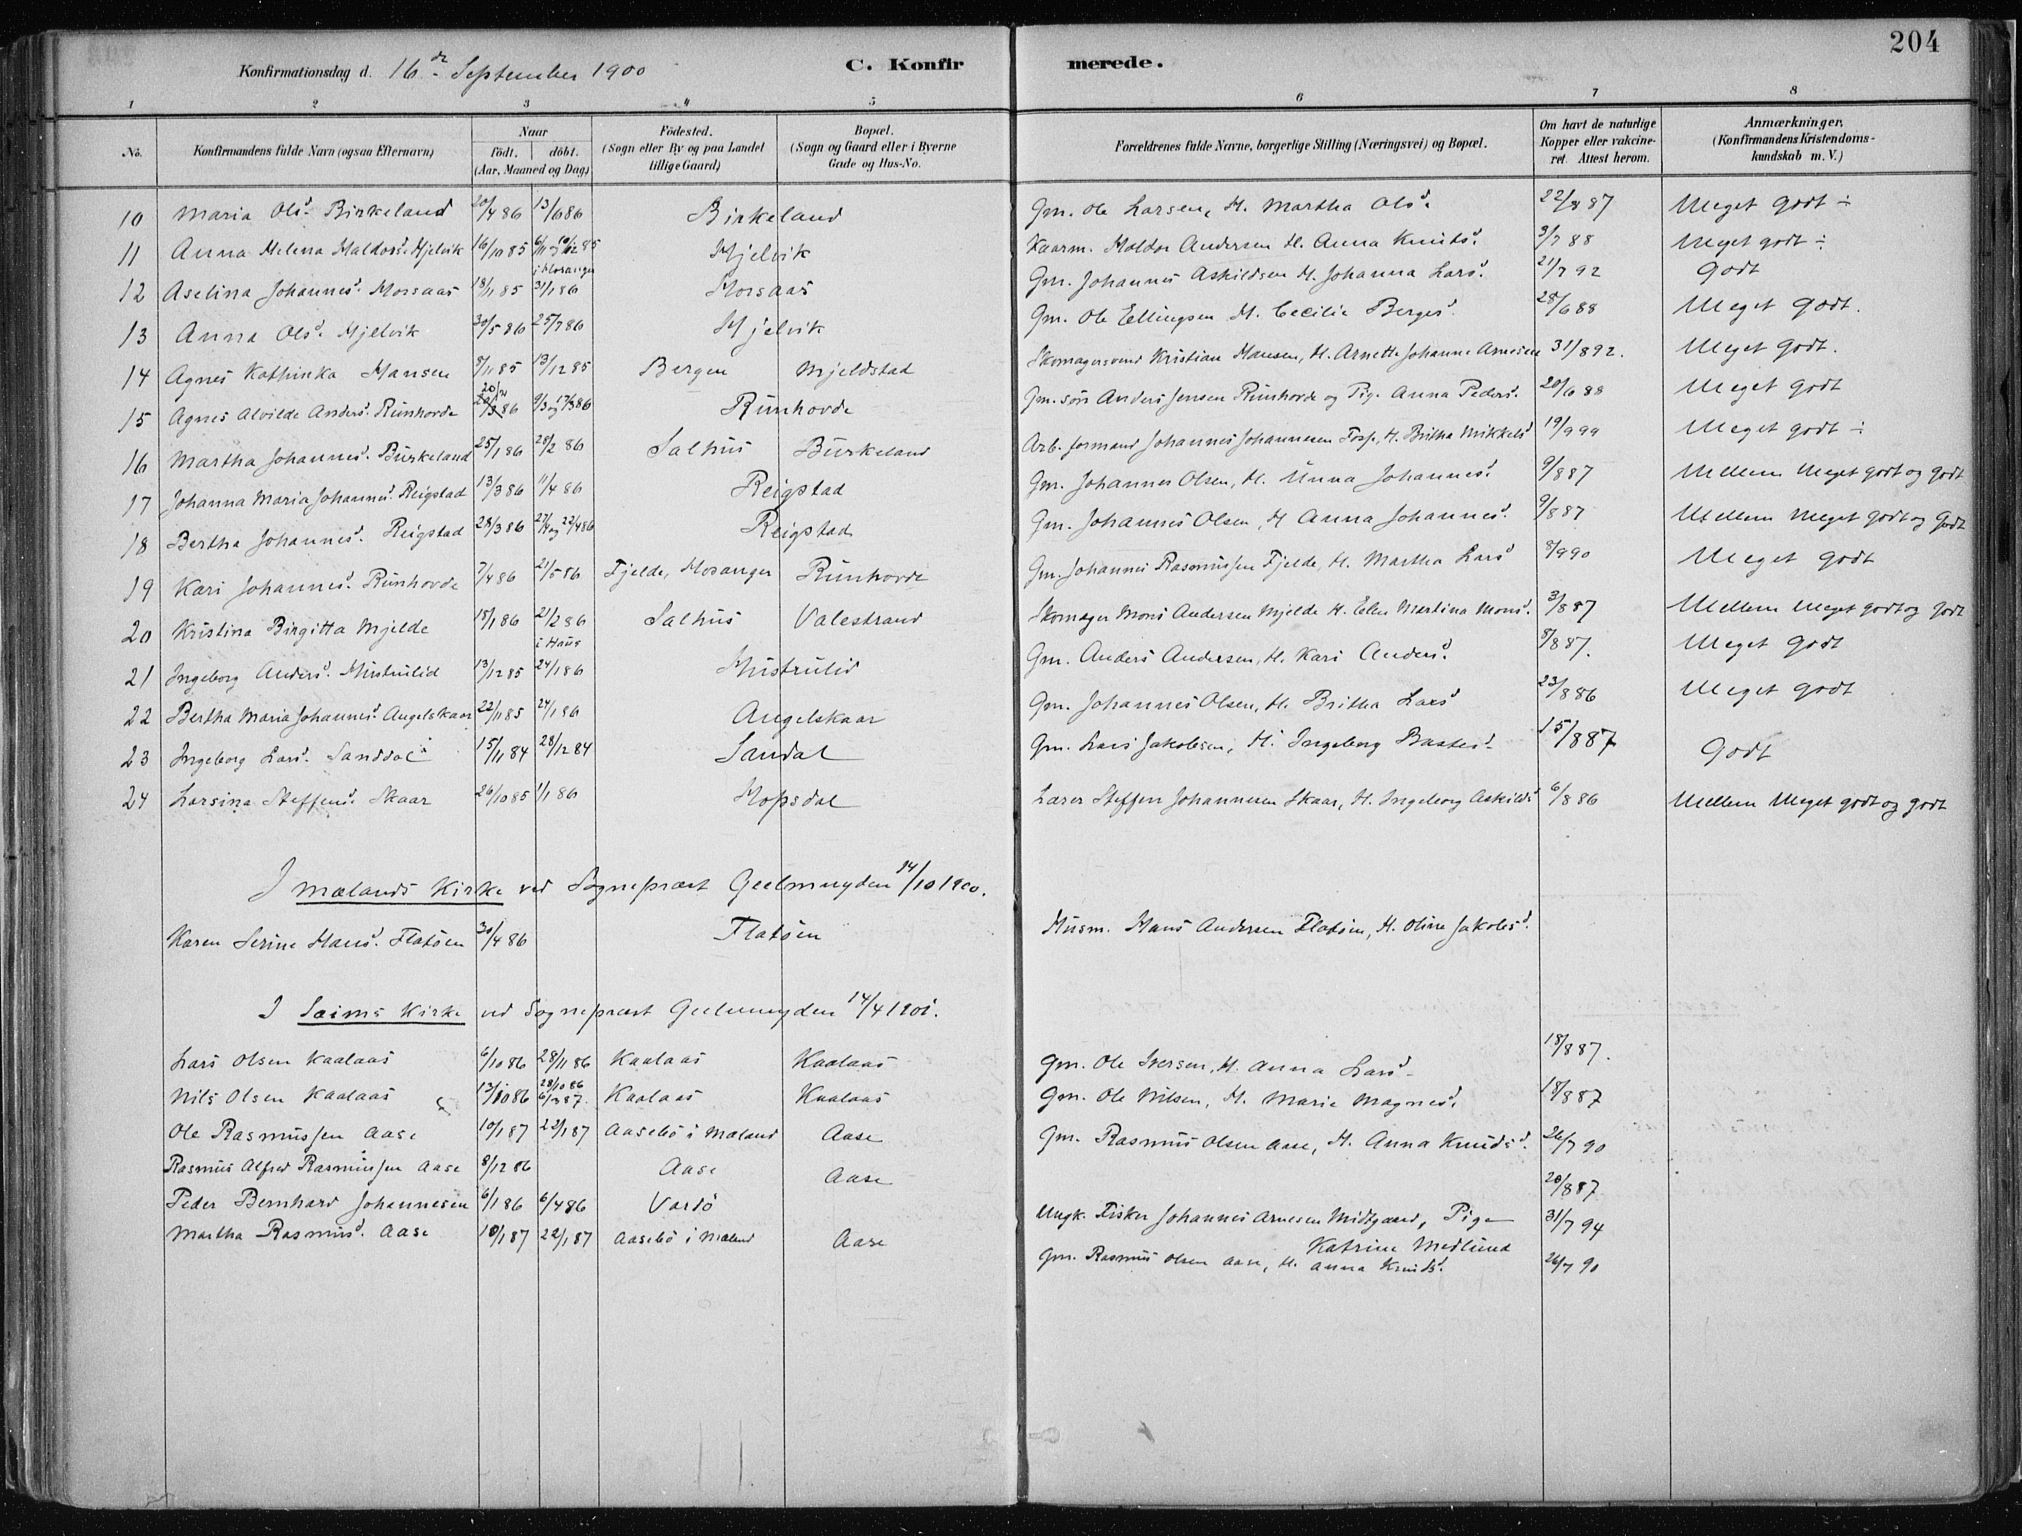 204
Konfirmationsdag d. 16de September 1900 C. Konfirmerede.
1 2 3 4 5 6 7 8
No. Konfirmandens fulde Navn (ogsaa Efternavn) Naar födt. döbt. (Aar, Maaned og Dag) Födested. (Sogn eller By og paa Landet tillige Gaard) Bopæl. (Sogn og Gaard eller i Byerne Gade og Hus-No. Forældrenes fulde Navne, borgerlige Stilling (Næringsvei) og Bopæl. Om havt de naturlige Kopper eller vakcineret. Attest herom. Anmærkninger. (Konfirmandens Kristendomskundskab m. V.)
10 Maria Olsd. Birkeland 20/4 86 13/6 86 Birkeland Gm. Ole Larsen, H. Martha Olsd. 22/8 87 Meget godt ÷
11 Anna Helena Haldorsd. Hjelvik 16/10 85 6/11 og 10/12 85 i Hosanger Hjelvik Kaarm. Haldor Andersen H. Anna Knutsd. 3/7 88 Meget godt ÷
12 Aselina Johannesd. Morsaas 18/11 85 31/1 86 Morsaas Gm. Johannes Askildsen H. Johanna Larsd. 21/7 92 Godt
13 Anna Olsd. Hjelvik 30/5 86 25/7 86 Hjelvik Gm. Ole Ellingsen H. Cecilia Bergesd. 28/6 88 Meget godt.
14 Agnes Kathinka Hansen 8/11 85 13/12 85 Bergen Mjeldstad Skomagersvend Kristian Hansen, H. Arnette Johanne Arnesen 31/8 92. Meget godt.
15 Agnes Alvilde Andersd. Runhovde 20/2 86 9/3 og 17/3 86 Runhovde Gm. søn Anders Jensen Runhovde og Pig. Anna Pedersd. 20/6 88 Meget godt
16 Martha Johannesd. Burkeland 25/1 86 28/2 86 Salhus Burkeland Arb. formand Johannes Johannesen Fosse, H. Britha Mikkelsd. 19/9 99 Meget godt ÷
17 Johanna Maria Johannesd. Reigstad 13/3 86 11/4 86 Reigstad Gm. Johannes Olsen, H. Unna Johannesd. 9/8 87 Mellem Meget godt og godt
18 Bertha Johannesd. Reigstad 28/3 86 22/4 86 Reigstad Gm. Johannes Olsen, H Anna Johannesd. 9/8 87 Mellem Meget godt og Godt
19 Kari Johannesd. Runhovde 7/4 86 21/5 86 Fjelde, Hosanger Runhovde Gm. Johannes Rasmussen Fjelde, H. Martha Larsd. 8/9 90 Meget godt
20 Kristina Birgitta Mjelde 18/1 86 21/2 86 i Haus Salhus Valestrand Skomager Mons Andersen Mjelde H. Elen Martina Monsd. 3/8 87 Mellem Meget godt og godt
21 Ingeborg Andersd. Mustrulid 13/12 85 24/1 86 Mustrulid Gm. Anders Andersen, H. Kari Andersd. 8/8 87. Meget godt
22 Bertha Maria Johannesd. Angelskaar 22/11 85 24/1 86 Angelskaar Gm. Johannes Olsen, H. Britha Larsd. 23/8 86 Meget godt
23 Ingeborg Larsd. Sanddal 15/11 84 28/12 84 Sandal Gm. Lars Jakobsen, H. Ingeborg Baltesd. 15/8 87 Godt
24 Larsina Steffensd. Skaar 26/10 85 1/1 86 Hopsdal Lærer Steffen Johannesen Skaar, H. Ingeborg Askildsd. 6/8 86 Mellem Meget godt og godt
I Mælands Kirke ved Sogneprest Geelmuyden 14/10 1900.
Karen Serine Hansd. Flatöen 30/4 86 Flatöen Husm. Hans Andersen Flatöen, H. Oline Jakobsd.
I Sæims Kirke ved Sogneprest Geelmuyden 14/4 1901.
Lars Olsen Kaalaas 6/10 86 28/11 86 Kaalaas Kaalaas Gm. Ole Iversen, H. Anna Larsd. 18/8 87.
Nils Olsen Kaalaas 13/10 86 28/10 86 6/3 87. Kaalaas Kaalaas Gm. Ole Nilsen, H. Marie Magnesd. 18/8 87
Ole Rasmussen Aase 10/1 87 22/1 87 Aasebö i Mæland Aase Gm. Rasmus Olsen Aase, H. Anna Knudsd. 26/7 90
Rasmus Alfred Rasmussen Aase 8/12 86 Aase Aase 20/8 87
Peder Bernhard Johannesen 6/1 86 6/4 86 Vardö Ungk. Fisker Johannes Arnesen Midtgaard, Pige Katrine Medlund 31/7 94
Martha Rasmusd. Aase 10/1 87 22/1 87 Aasebö i Mæland Aase Gm. Rasmus Olsen Aase, H. Anna Knudsd. 26/7 90